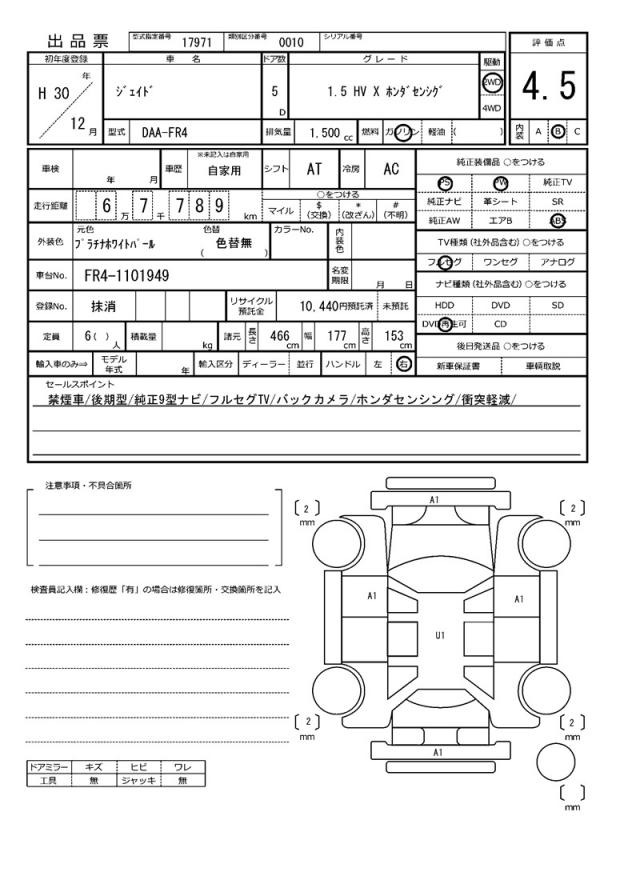 出品票 型式指定番号 17971 類別区分番号 0010 シリアル番号
評価点
4.5
内装 A B C
初年度登録 車名 ドア数 グレード 駆動
H 30 年 ｼﾞｪｲﾄﾞ 5 D 1.5 HV X ﾎﾝﾀﾞｾﾝｼﾝｸﾞ 2WD
4WD
12 月 型式 DAA-FR4 排気量 1.500 cc 燃料 ガソリン 軽油 ( )
車検 年 月 車歴 ※未記入は自家用 自家用 シフト AT 冷房 AC
走行距離 6 万 7 千 7 8 9 km ○をつける
マイル $(交換) *(改ざん) #(不明)
外装色 元色 ﾌﾟﾗﾁﾅﾎﾜｲﾄﾊﾟｰﾙ 色替 ( 色替無 ) カラーNo. 内装色
車台No. FR4-1101949 名変期限 月 日
登録No. 抹消 リサイクル預託金 10,440円預託済 未預託
定員 6( ) 人 積載量 kg 諸元 長さ 466 cm 幅 177 cm 高さ 153 cm
輸入車のみ⇒ モデル年式 年 輸入区分 ディーラー 並行 ハンドル 左 右
純正装備品 ○をつける
PS PW 純正TV
純正ナビ 革シート SR
純正AW エアB ABS
TV種類 (社外品含む) ○をつける
フルセグ ワンセグ アナログ
ナビ種類 (社外品含む) ○をつける
HDD DVD SD
DVD再生可 CD
後日発送品 ○をつける
新車保証書 車輌取説
セールスポイント
禁煙車/後期型/純正9型ナビ/フルセグTV/バックカメラ/ホンダセンシング/衝突軽減/
注意事項・不具合箇所
検査員記入欄：修復歴「有」の場合は修復箇所・交換箇所を記入
ドアミラー キズ ヒビ ワレ
工具 無 ジャッキ 無
A1
[ 2 ] mm
[ 2 ] mm
A1
A1
U1
[ 2 ] mm
[ 2 ] mm
A1
[ ] mm